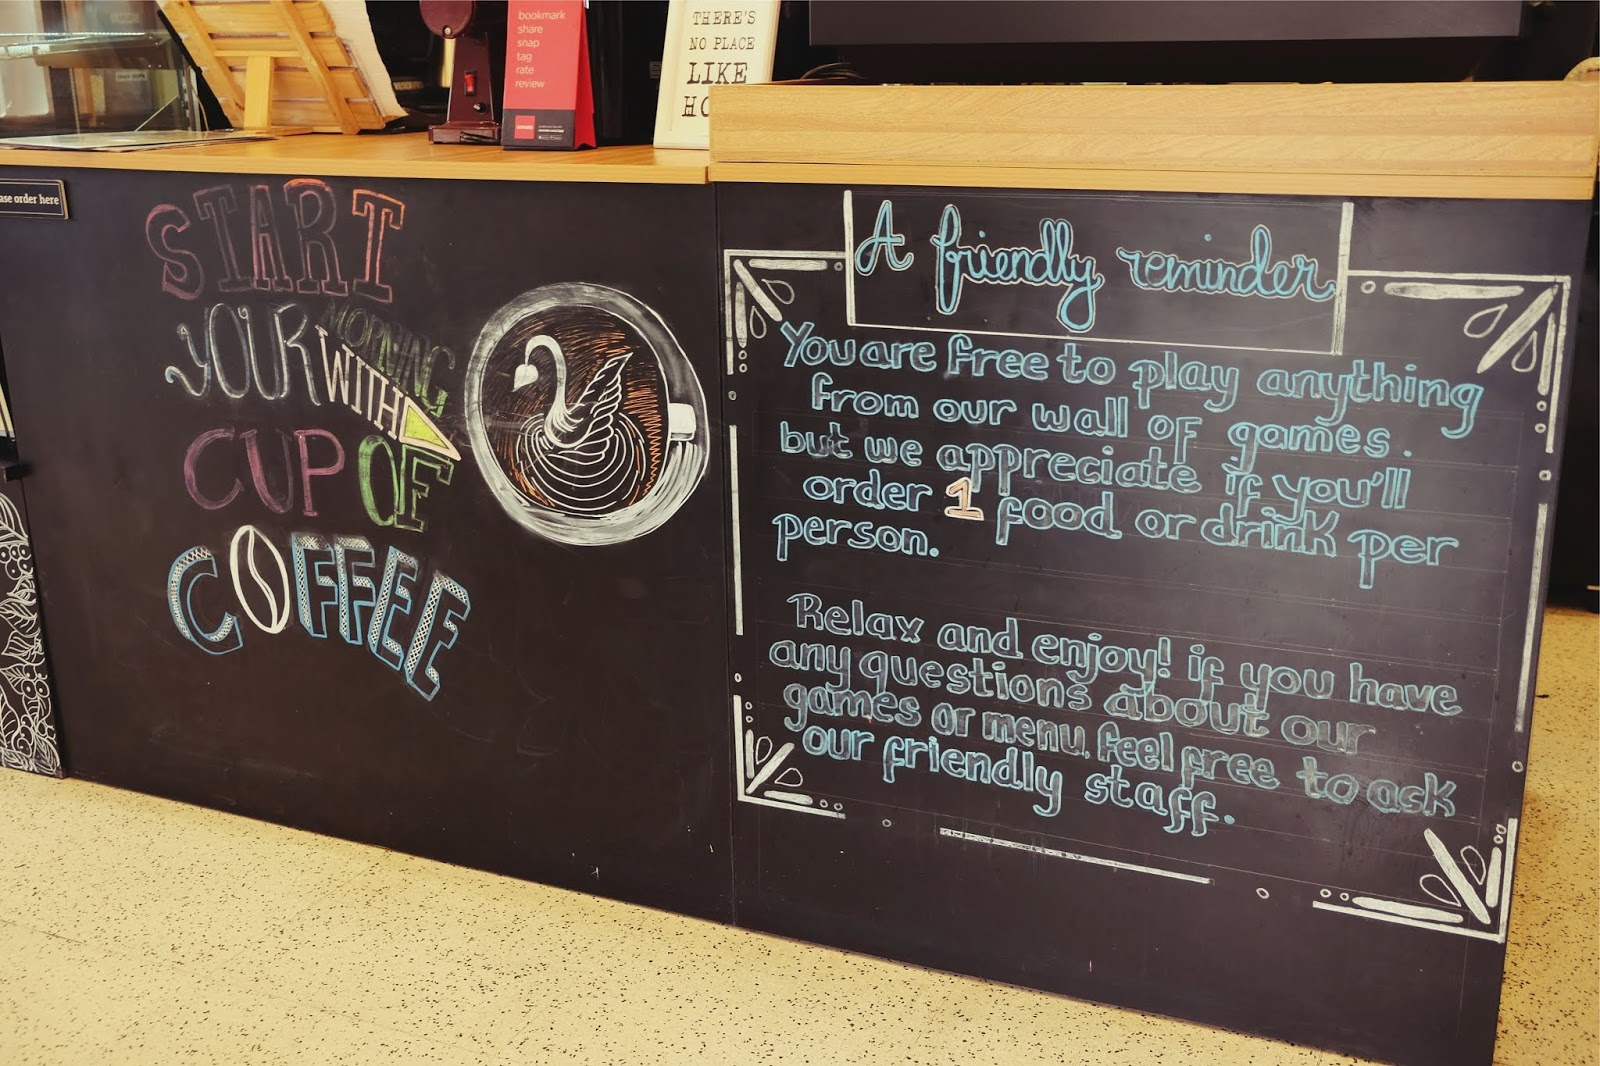 bookmark
share
snap
tag
rate
review
THERE'S
NO PLACE
LIKE
ase order here
START
YOUR MORNING
WITH A
CUP OF
COFFEE
A friendly reminder
You are free to play anything
from our wall of games.
but we appreciate if you'll
order 1 food or drink per
person.
Relax and enjoy! if you have
any questions about our
games or menu, feel free to ask
our friendly staff.